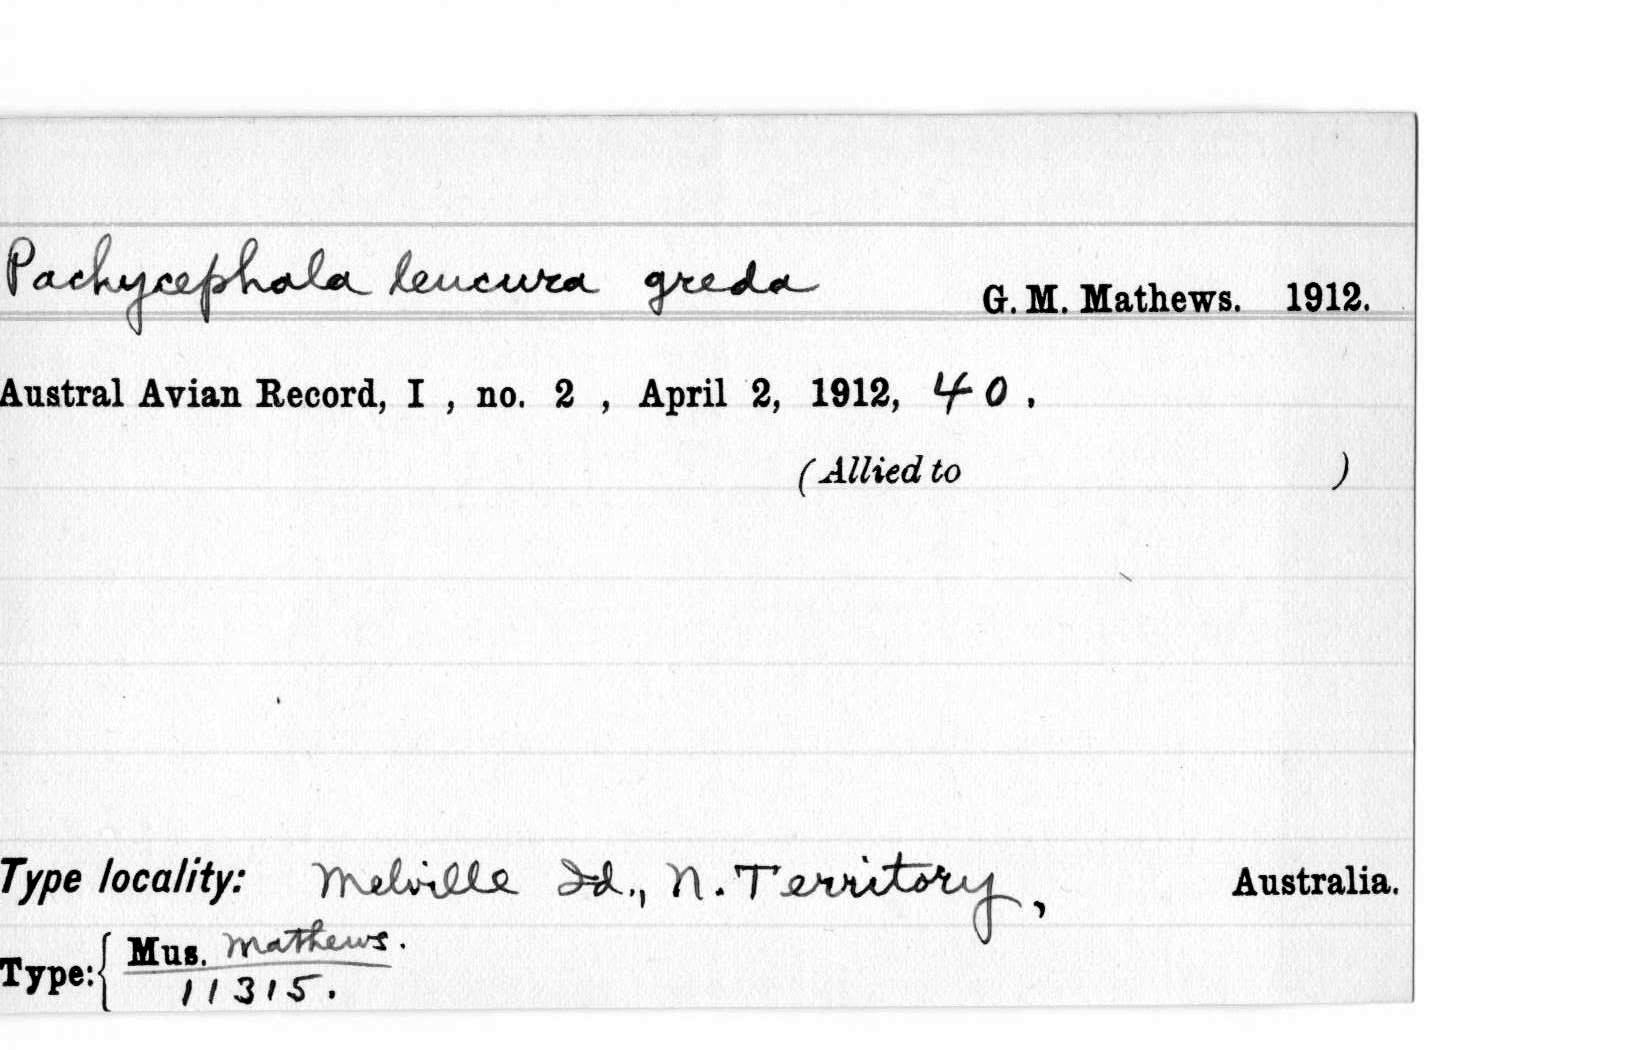 Pachycephala leucura greda G. M. Mathews. 1912.
Austral Avian Record, I , no. 2 , April 2, 1912, 40 .
(Allied to )
Type locality: Melville Id., N. Territory, Australia.
Type: { Mus. Mathews.
11315.